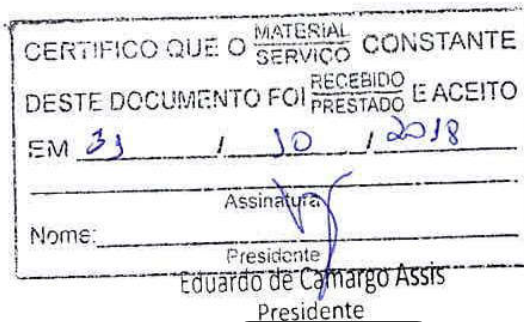 CERTIFICO QUE O MATERIAL/SERVIÇO CONSTANTE
DESTE DOCUMENTO FOI RECEBIDO/PRESTADO E ACEITO
EM 31 / 10 / 2018
Assinatura
Nome:
Presidente
Eduardo de Camargo Assis
Presidente